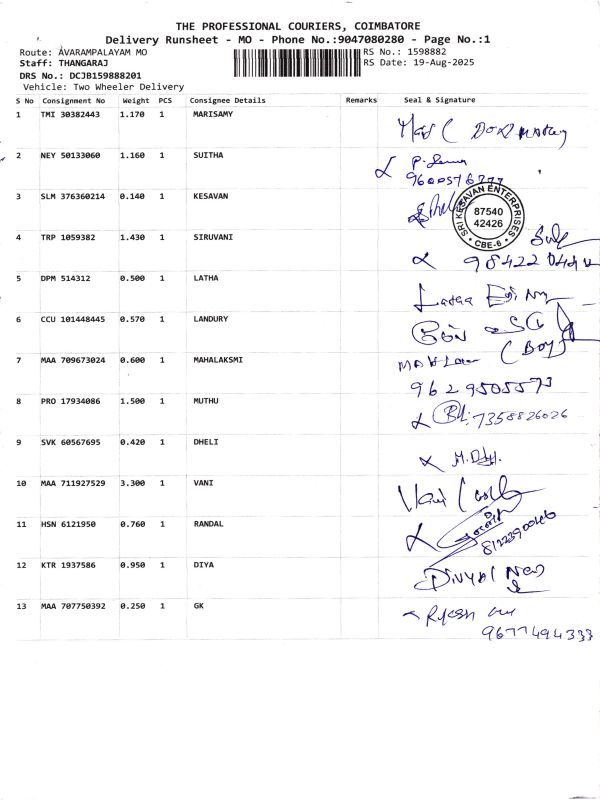 THE PROFESSIONAL COURIERS, COIMBATORE
Delivery Runsheet - MO - Phone No.:9047080280 - Page No.:1
Route: AVARAMPALAYAM MO RS No.: 1598882
Staff: THANGARAJ RS Date: 19-Aug-2025
DRS No.: DCJB159888201
Vehicle: Two Wheeler Delivery
S No Consignment No Weight PCS Consignee Details Remarks Seal & Signature
1 TMI 30382443 1.170 1 MARISAMY
2 NEY 50133060 1.160 1 SUITHA
3 SLM 376360214 0.140 1 KESAVAN
SRI KESAVAN ENTERPRISES
87540
42426
CBE-6
4 TRP 1059382 1.430 1 SIRUVANI
5 DPM 514312 0.500 1 LATHA
Latha
6 CCU 101448445 0.570 1 LANDURY
(BOY)
7 MAA 709673024 0.600 1 MAHALAKSMI
9629505573
8 PRO 17934086 1.500 1 MUTHU
7358826026
9 SVK 60567695 0.420 1 DHELI
10 MAA 711927529 3.300 1 VANI
Vani
11 HSN 6121950 0.760 1 RANDAL
12 KTR 1937586 0.950 1 DIYA
13 MAA 707750392 0.250 1 GK
9677494333